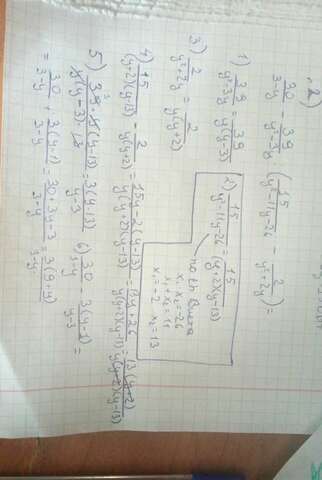 2)
30/(3-y) - 39/(y²-3y) · (15/(y²-11y-26) - 2/(y²+2y)) =
1) 39/(y²-3y) = 39/(y(y-3))
2) 15/(y²-11y-26) = 15/((y+2)(y-13))
по т. Виета
x₁·x₂=-26
x₁+x₂=11
x₁=-2 x₂=13
3) 2/(y²+2y) = 2/(y(y+2))
4) 15/((y+2)(y-13)) - 2/(y(y+2)) = (15y-2(y-13))/(y(y+2)(y-13)) = (13y+26)/(y(y+2)(y-13)) = 13(y+2)/(y(y+2)(y-13))
5) 39·y(y-13)/(y(y-3)·13) = 3(y-13)/(y-3)
6) 30/(3-y) - 3(y-1)/(y-3) =
= 30/(3-y) + 3(y-1)/(3-y) = (30+3y-3)/(3-y) = 3(9+y)/(3-y)